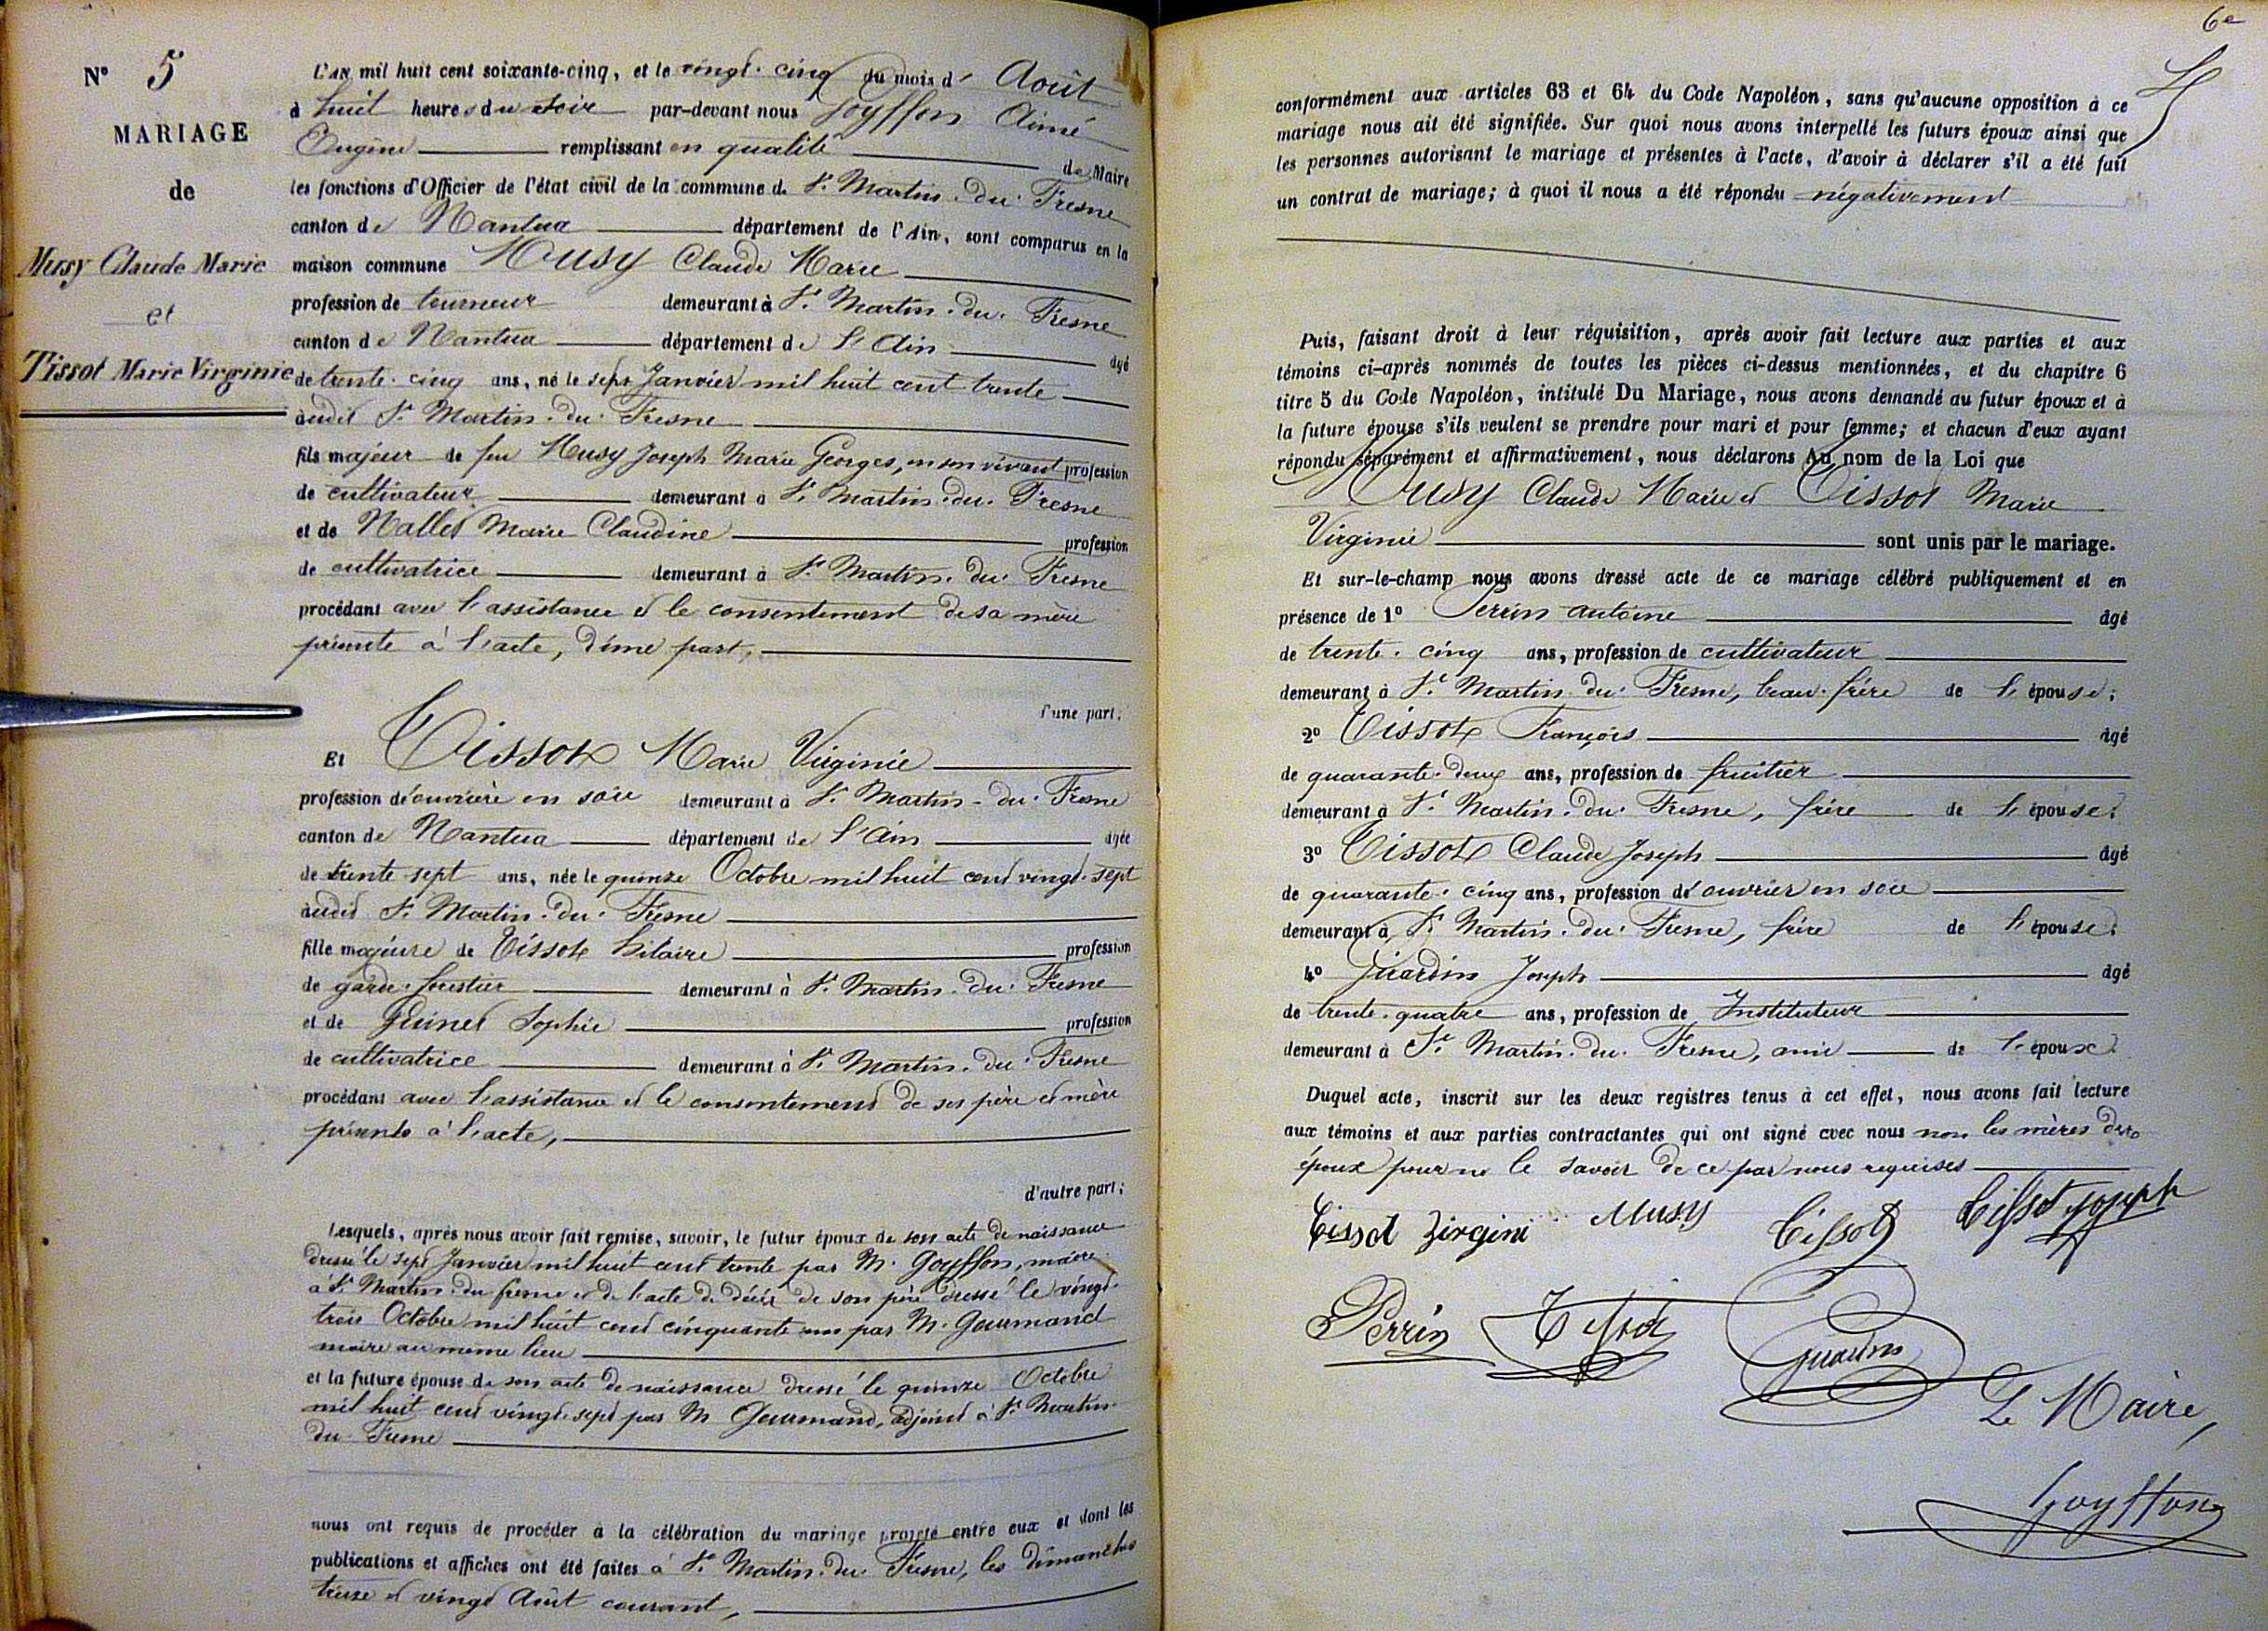 N° 5
MARIAGE
de
Musy Claude Marie
et
Tissot Marie Virginie
L'AN mil huit cent soixante-cinq, et le vingt-cinq du mois d' Août
à huit heures du soir par-devant nous Goyffon Aimé
Eugène remplissant en qualité de Maire
les fonctions d'Officier de l'état civil de la commune de St Martin-du-Fresne
canton de Nantua département de l'Ain, sont comparus en la
maison commune Musy Claude Marie
profession de tourneur demeurant à St Martin-du-Fresne
canton de Nantua département de l'Ain âgé
de trente-cinq ans, né le sept Janvier mil huit cent trente
audit St Martin-du-Fresne
fils majeur de feu Musy Joseph Marie Georges, en son vivant profession
de cultivateur demeurant à St Martin-du-Fresne
et de Nallet Marie Claudine profession
de cultivatrice demeurant à St Martin-du-Fresne
procédant avec l'assistance et le consentement de sa mère
présente à l'acte, d'une part,
d'une part.
Et Tissot Marie Virginie
profession d'ouvrière en soie demeurant à St Martin-du-Fresne
canton de Nantua département de l'Ain âgée
de trente-sept ans, née le quinze Octobre mil huit cent vingt-sept
audit St Martin-du-Fresne
fille majeure de Tissot hilaire profession
de garde-forestier demeurant à St Martin-du-Fresne
et de Guinet Sophie profession
de cultivatrice demeurant à St Martin-du-Fresne
procédant avec l'assistance et le consentement de ses père et mère
présents à l'acte,
d'autre part;
Lesquels, après nous avoir fait remise, savoir, le futur époux de son acte de naissance
dressé le sept Janvier mil huit cent trente par M. Goyffon, maire
à St Martin-du-fresne et de l'acte de décès de son père dressé le vingt-
trois Octobre mil huit cent cinquante un par M. Gourmand
maire au même lieu
et la future épouse de son acte de naissance dressé le quinze Octobre
mil huit cent vingt-sept par M Gourmand, adjoint à St Martin-
du-Fresne
nous ont requis de procéder à la célébration du mariage projeté entre eux et dont les
publications et affiches ont été faites à St Martin-du-Fresne, les dimanches
treize et vingt Août courant,
6e
conformément aux articles 63 et 64 du Code Napoléon, sans qu'aucune opposition à ce
mariage nous ait été signifiée. Sur quoi nous avons interpellé les futurs époux ainsi que
les personnes autorisant le mariage et présentes à l'acte, d'avoir à déclarer s'il a été fait
un contrat de mariage; à quoi il nous a été répondu négativement
Puis, faisant droit à leur réquisition, après avoir fait lecture aux parties et aux
témoins ci-après nommés de toutes les pièces ci-dessus mentionnées, et du chapitre 6
titre 5 du Code Napoléon, intitulé Du Mariage, nous avons demandé au futur époux et à
la future épouse s'ils veulent se prendre pour mari et pour femme; et chacun d'eux ayant
répondu séparément et affirmativement, nous déclarons Au nom de la Loi que
Musy Claude Marie et Tissot Marie
Virginie sont unis par le mariage.
Et sur-le-champ nous avons dressé acte de ce mariage célébré publiquement et en
présence de 1° Perrin antoine âgé
de trente-cinq ans, profession de cultivateur
demeurant à St Martin-du-Fresne, beau-frère de l'épouse;
2° Tissot François âgé
de quarante-deux ans, profession de fruitier
demeurant à St Martin-du-Fresne, frère de l'épouse;
3° Tissot Claude Joseph âgé
de quarante-cinq ans, profession d'ouvrier en soie
demeurant à St Martin-du-Fresne, frère de l'épouse;
4° Girardin Joseph âgé
de trente-quatre ans, profession de Instituteur
demeurant à St Martin-du-Fresne, ami de l'époux.
Duquel acte, inscrit sur les deux registres tenus à cet effet, nous avons fait lecture
aux témoins et aux parties contractantes qui ont signé avec nous non les mères des
époux pour ne le savoir de ce par nous requises
Tissot Zirgini Musy Tissot Tissot joseph
Perrin Tissot Girardin
Le Maire,
Goyffon